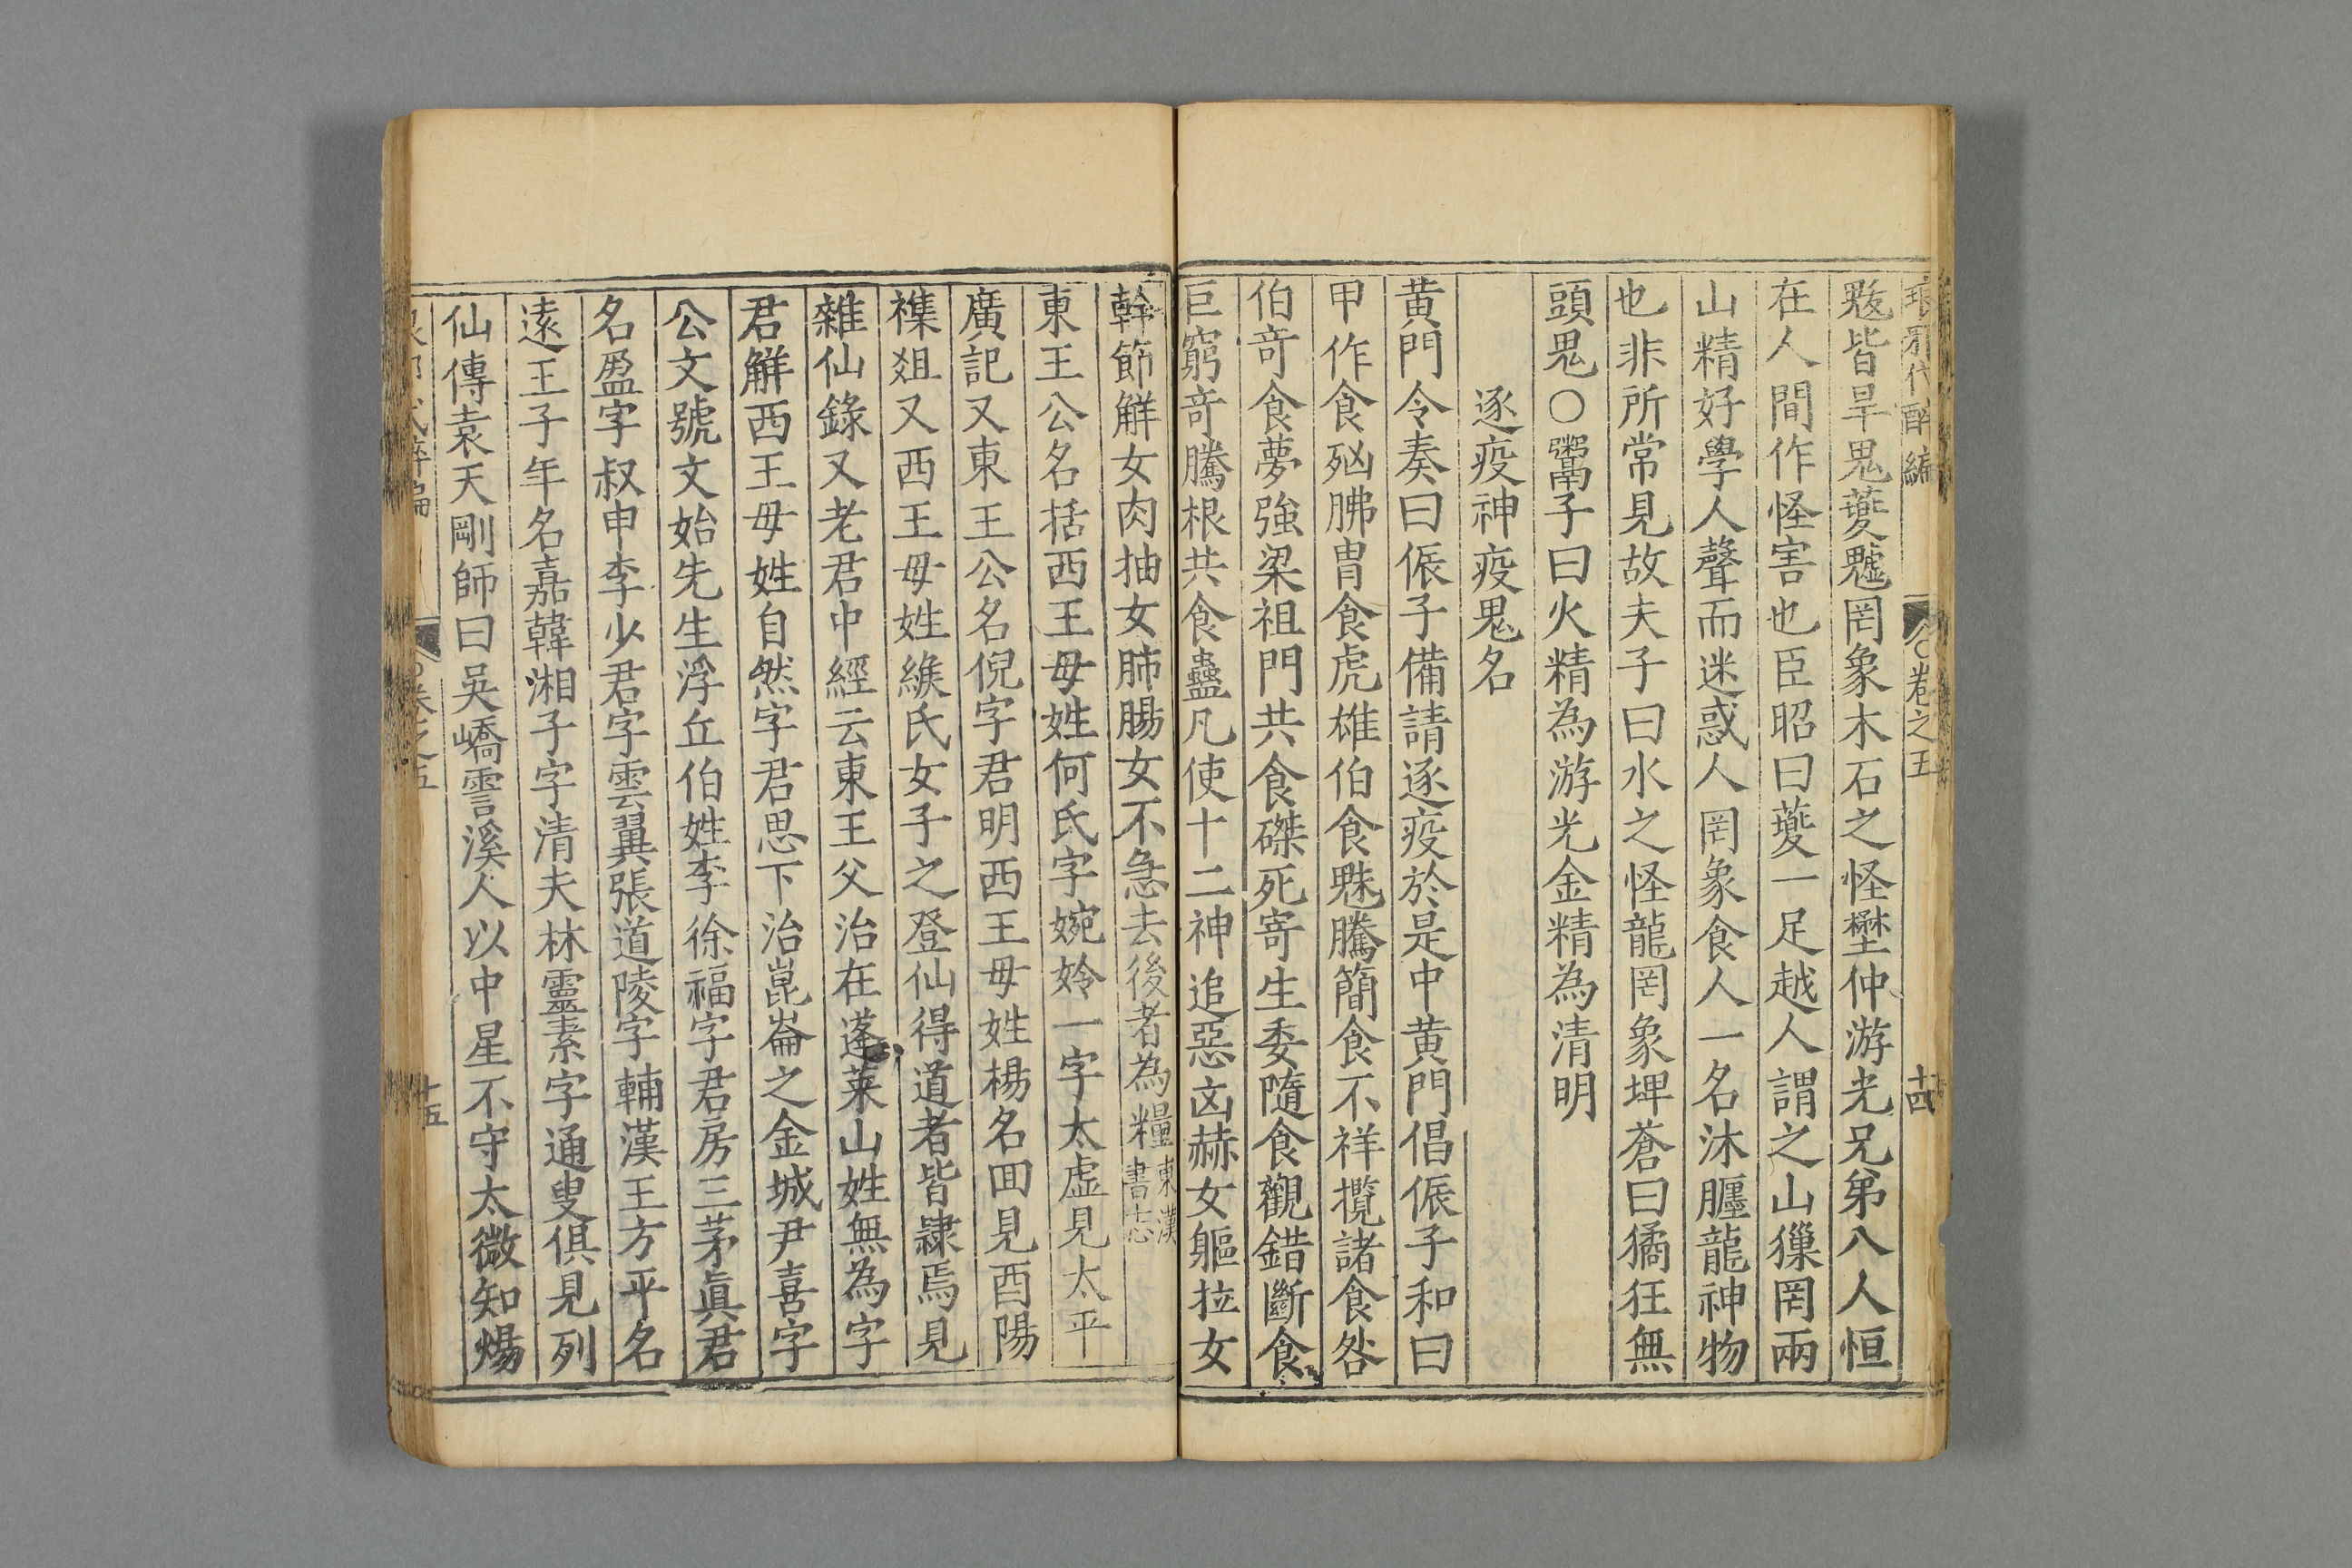 琅邪代醉編 卷之五 十四
鬾皆旱鬼夔魖罔象木石之怪壄仲游光兄弟八人恒
在人間作怪害也臣昭曰夔一足越人謂之山獵罔兩
山精好學人聲而迷惑人罔象食人一名沐腫龍神物
也非所常見故夫子曰水之怪龍罔象埤蒼曰獝狂無
頭鬼○鬻子曰火精為游光金精為清明
逐疫神疫鬼名
黄門令奏曰侲子備請逐疫於是中黄門倡侲子和曰
甲作食㐫胇胃食虎雄伯食魅騰簡食不祥攬諸食咎
伯奇食夢強梁祖門共食磔死寄生委隨食觀錯斷食
巨窮奇騰根共食蠱凡使十二神追惡凶赫女軀拉女
幹節解女肉抽女肺腸女不急去後者為糧東漢書志
東王公名括西王母姓何氏字婉妗一字太虛見太平
廣記又東王公名倪字君明西王母姓楊名回見酉陽
襍爼又西王母姓緱氏女子之登仙得道者皆隷焉見
雜仙錄又老君中經云東王父治在蓬萊山姓無為字
君解西王母姓自然字君思下治崑崙之金城尹喜字
公文號文始先生浮丘伯姓李徐福字君房三茅眞君
名盈字叔申李少君字雲翼張道陵字輔漢王方平名
遠王子年名嘉韓湘子字清夫林靈素字通叟俱見列
仙傳袁天剛師曰吳嶠霅溪人以中星不守太微知煬
代醉編 卷之五 十五